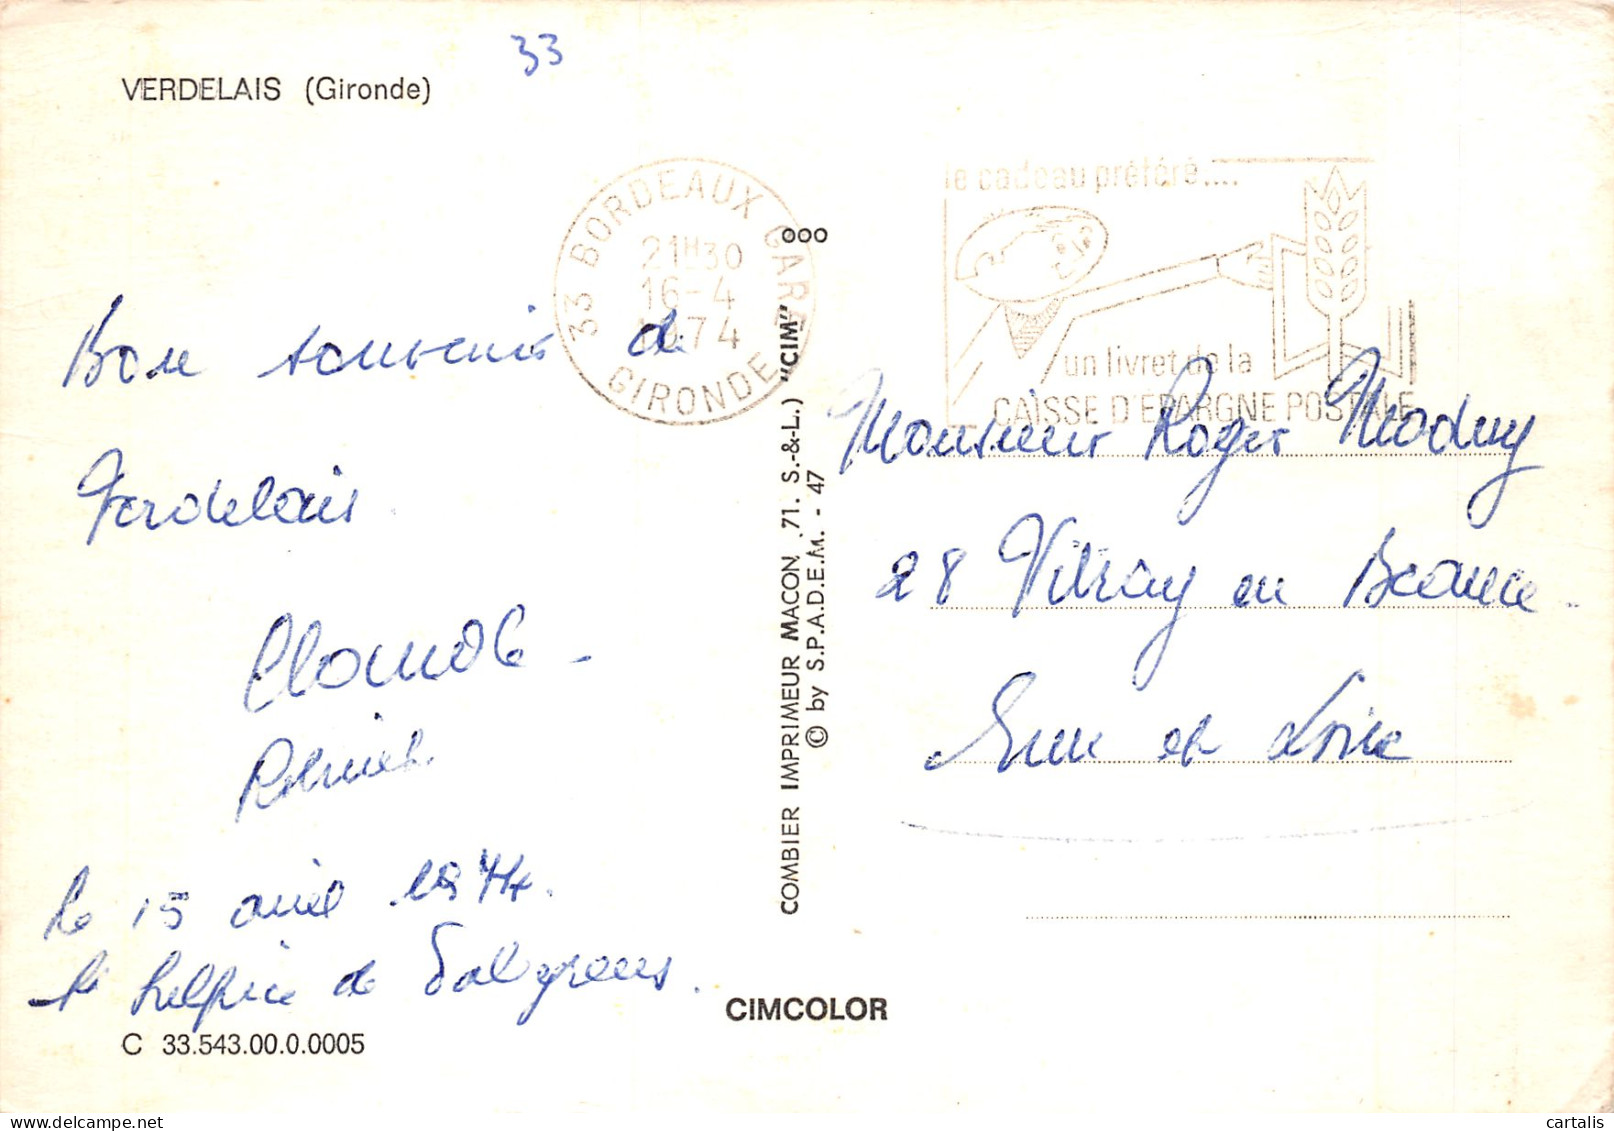 33
VERDELAIS (Gironde)
33 BORDEAUX GARE
21H30
16-4
1974
GIRONDE
le cadeau préféré....
un livret de la
CAISSE D'EPARGNE POSTALE
Bon souvenir de
Verdelais
Claude
le 15 avril 1974.
St Sulpice de
C 33.543.00.0.0005
ooo
COMBIER IMPRIMEUR MACON 71. S.-&-L.) "CIM"
© by S.P.A.D.E.M. - 47
CIMCOLOR
Monsieur Roger
28 Vitray en Beauce.
Eure et Loire
© cartalis